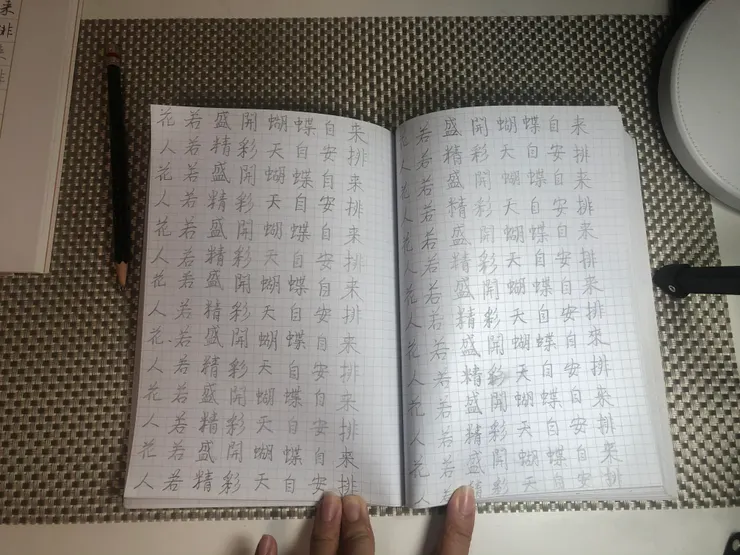 来
排
来
排
花若盛開蝴蝶自来
人若精彩天自安排
花若盛開蝴蝶自来
人若精彩天自安排
花若盛開蝴蝶自来
人若精彩天自安排
花若盛開蝴蝶自来
人若精彩天自安排
花若盛開蝴蝶自来
人若精彩天自安排
花若盛開蝴蝶自来
人若精彩天自安排
花若盛開蝴蝶自来
人若精彩天自安排
花若盛開蝴蝶自来
人若精彩天自安排
花若盛開蝴蝶自来
人若精彩天自安排
花若盛開蝴蝶自来
人若精彩天自安排
花若盛開蝴蝶自来
人若精彩天自安排
花若盛開蝴蝶自来
人若精彩天自安排
花若盛開蝴蝶自来
人若精彩天自安排
花若盛開蝴蝶自来
人若彩天自安排